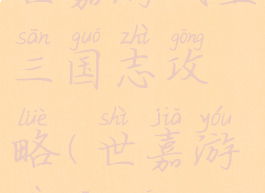 sān guó zhì gōng
三国志攻
lüè shì jiā yóu
略(世嘉游